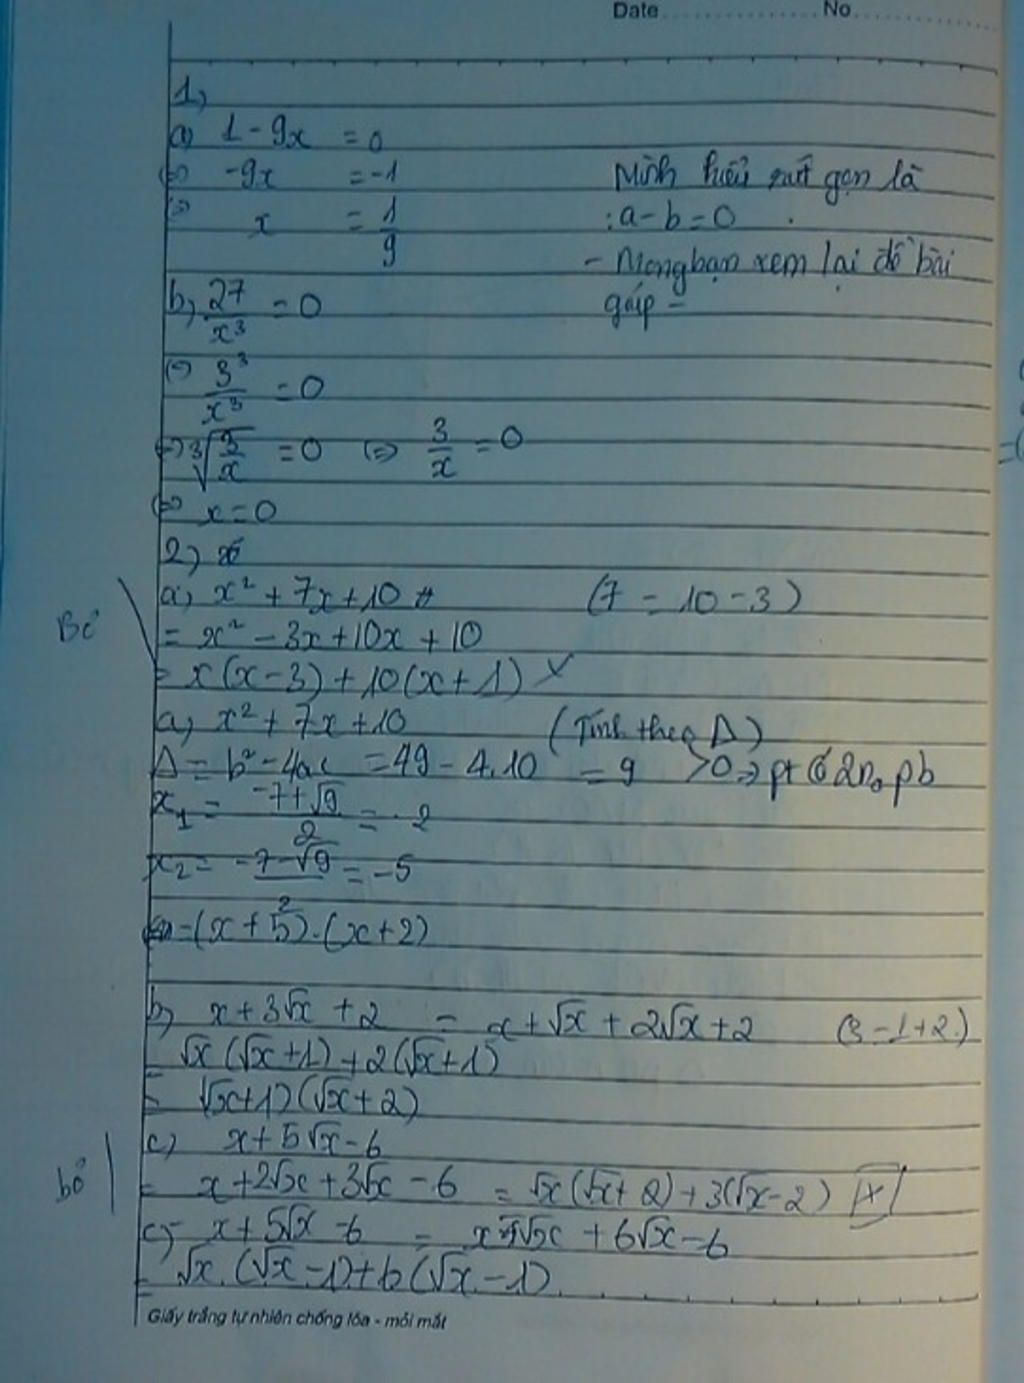 Date No
1,
a) 1 - 9x = 0
(=) -9x = -1 Mình hiểu rút gọn là
(=) x = 1/9 : a - b = 0
- Mong bạn xem lại đề bài
b, 27/x³ = 0 giúp -
(=) 3³/x³ = 0
(=) ³√3/x = 0 (=) 3/x = 0
(=) x = 0
2,
a, x² + 7x + 10 (7 = 10 - 3)
Bỏ
= x² - 3x + 10x + 10
= x(x - 3) + 10(x + 1) ×
a, x² + 7x + 10 (Tính theo Δ)
Δ = b² - 4ac = 49 - 4.10 = 9 > 0 => pt có 2n₀ pb
x₁ = (-7 + √9)/2 = -2
x₂ = (-7 - √9)/2 = -5
= (x + 5).(x + 2)
b, x + 3√x + 2 = x + √x + 2√x + 2 (3 = 1 + 2)
= √x(√x + 1) + 2(√x + 1)
= (√x + 1)(√x + 2)
c) x + 5√x - 6
bỏ = x + 2√x + 3√x - 6 = √x(√x + 2) + 3(√x - 2) [×]
c, x + 5√x - 6 = x - √x + 6√x - 6
= √x.(√x - 1) + 6(√x - 1)
Giấy trắng tự nhiên chống lóa - mỏi mắt